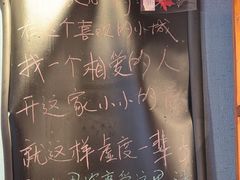 在这个喜欢的小城
找一个相爱的人
开这家小小的店
就这样虚度一辈子